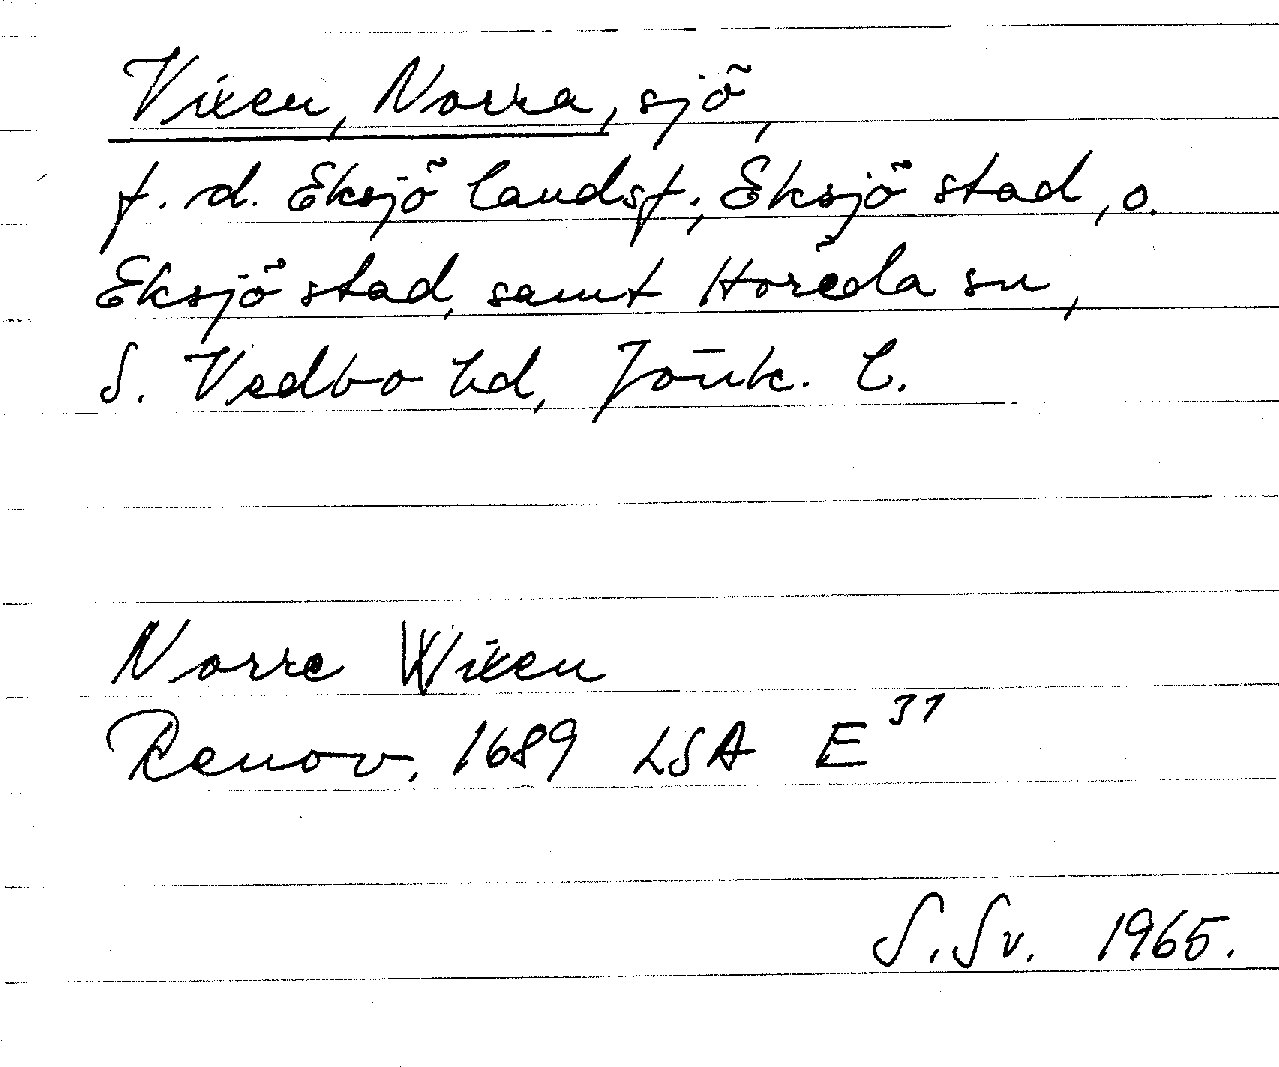 Vixen, Norra, sjö,
f. d. Eksjö landsf.; Eksjö stad, o.
Eksjö stad, samt Höreda sn,
S. Vedbo hd, Jönk. l.
Norre Wixen
Renov. 1689 LSA E³¹
S. Sv. 1965.